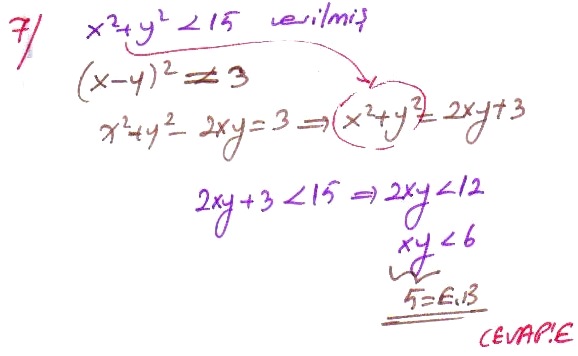 7/ x²+y² < 15 verilmiş
(x-y)² = 3
x²+y² - 2xy = 3 ⇒ x²+y² = 2xy+3
2xy+3 < 15 ⇒ 2xy < 12
xy < 6
5 = E.B
CEVAP:E